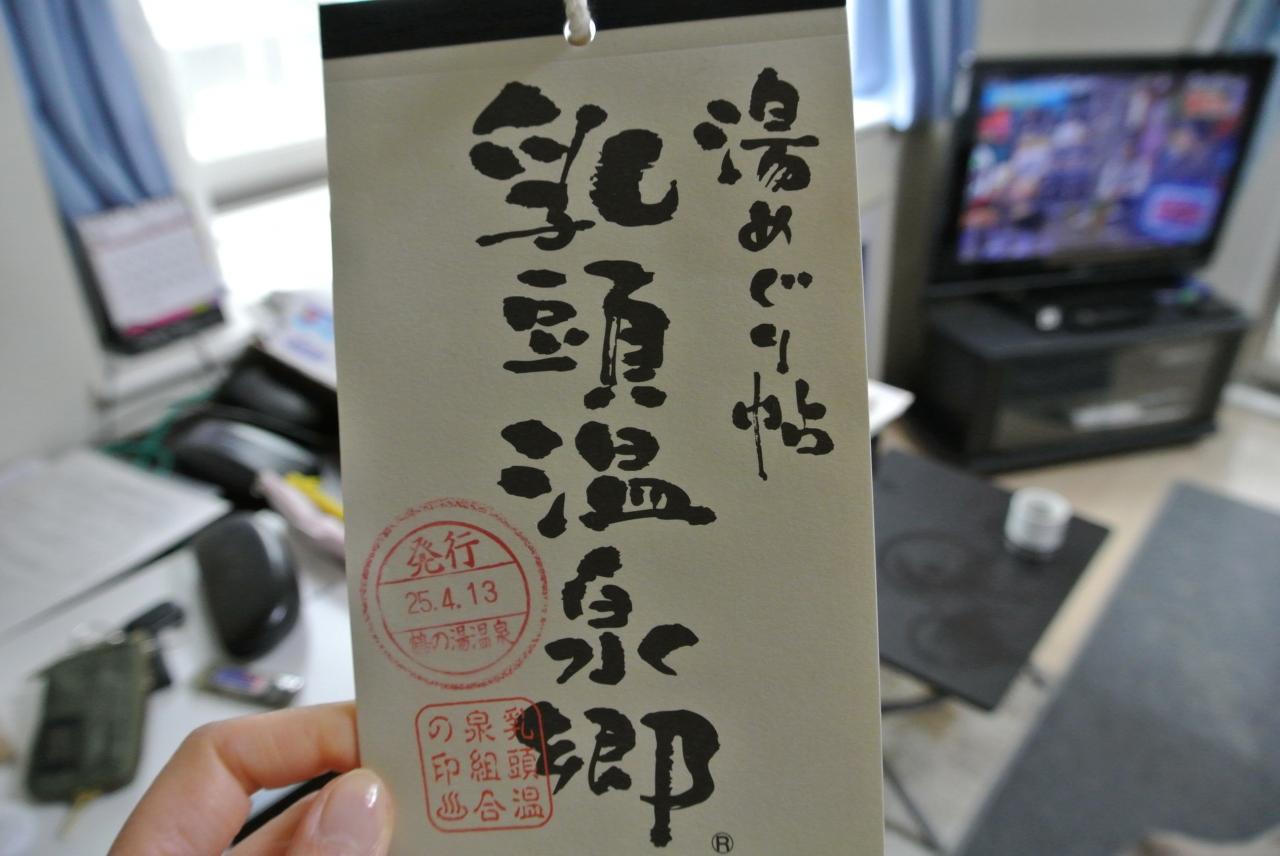 湯めぐり帖
乳頭温泉郷
発行
25.4.13
鶴の湯温泉
乳頭温
泉組合
の印♨
®